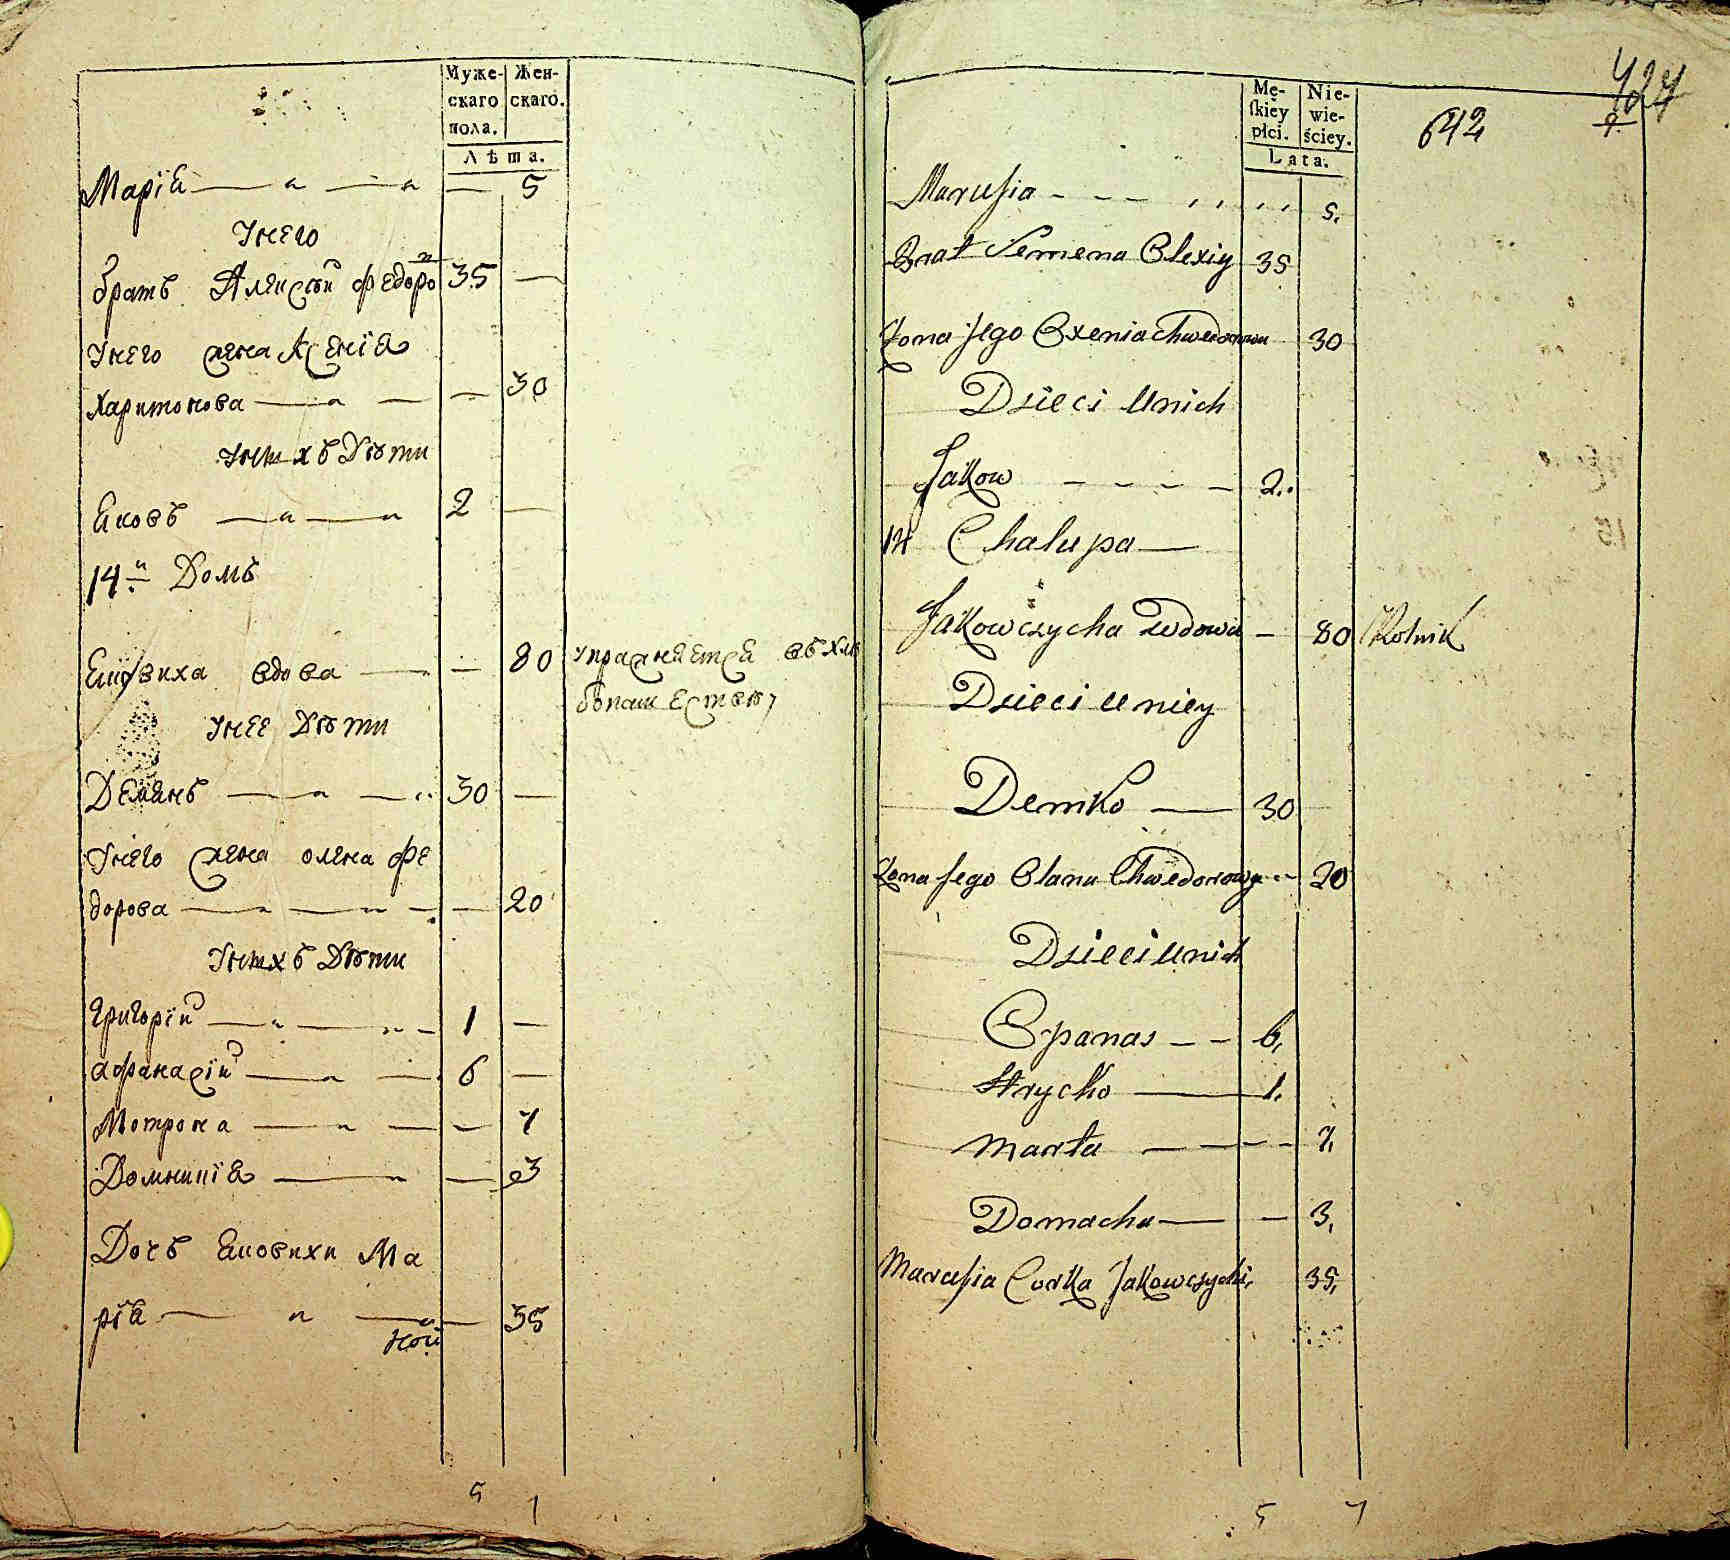 Муже-
скаго
пола.
Жен-
скаго.
Лѣта.
Марія — „ — „ — 5
У него
братъ Алексѣй Федоро 35 —
У него жена Ксенія
Харитонова — „ — — 30
У нихъ дѣти
Яковъ — „ — „ 2 —
14й Домъ
Яковиха вдова — — 80 упражняется въ хлѣ
бопашествѣ
У нее Дѣти
Демянъ — „ — „ 30 —
У него жена олена фе
дорова — „ — „ — — 20
У нихъ Дѣти
Григорій — „ — „ — 1 —
афанасій — „ — 6 —
Мотрона — „ — — 7
Домникія — „ — 3
Дочь Яковихи Ма
рія — „ — — 35
ной
5 7
Mę-
skiéy
płci.
Nie-
wie-
ściey.
Lata.
642
Marusia - - - „ „ 5.
Brat Semena Olexiy 35
Zona Jego Oxenia Chwedorowa 30
Dzieci Unich
Jakow - - - - 2.
14 Chalupa —
Jakowczycha wdowa — 80 Rolnik
Dzieci U niey
Demko — 30
Zona Jego Olana Chwedorowa - - 20
Dzieci Unich
Opanas - - 6.
Hrycko — 1.
Marta — - - - 7.
Domacha — - 3.
Marusia Corka Jakowczychi. 35.
5 7